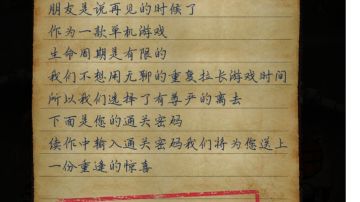 朋友是说再见的时候了
作为一款单机游戏
生命周期是有限的
我们不想用无聊的重复拉长游戏时间
所以我们选择了有尊严的离去
下面是您的通关密码
续作中输入通关密码我们将为您送上
一份重逢的惊喜